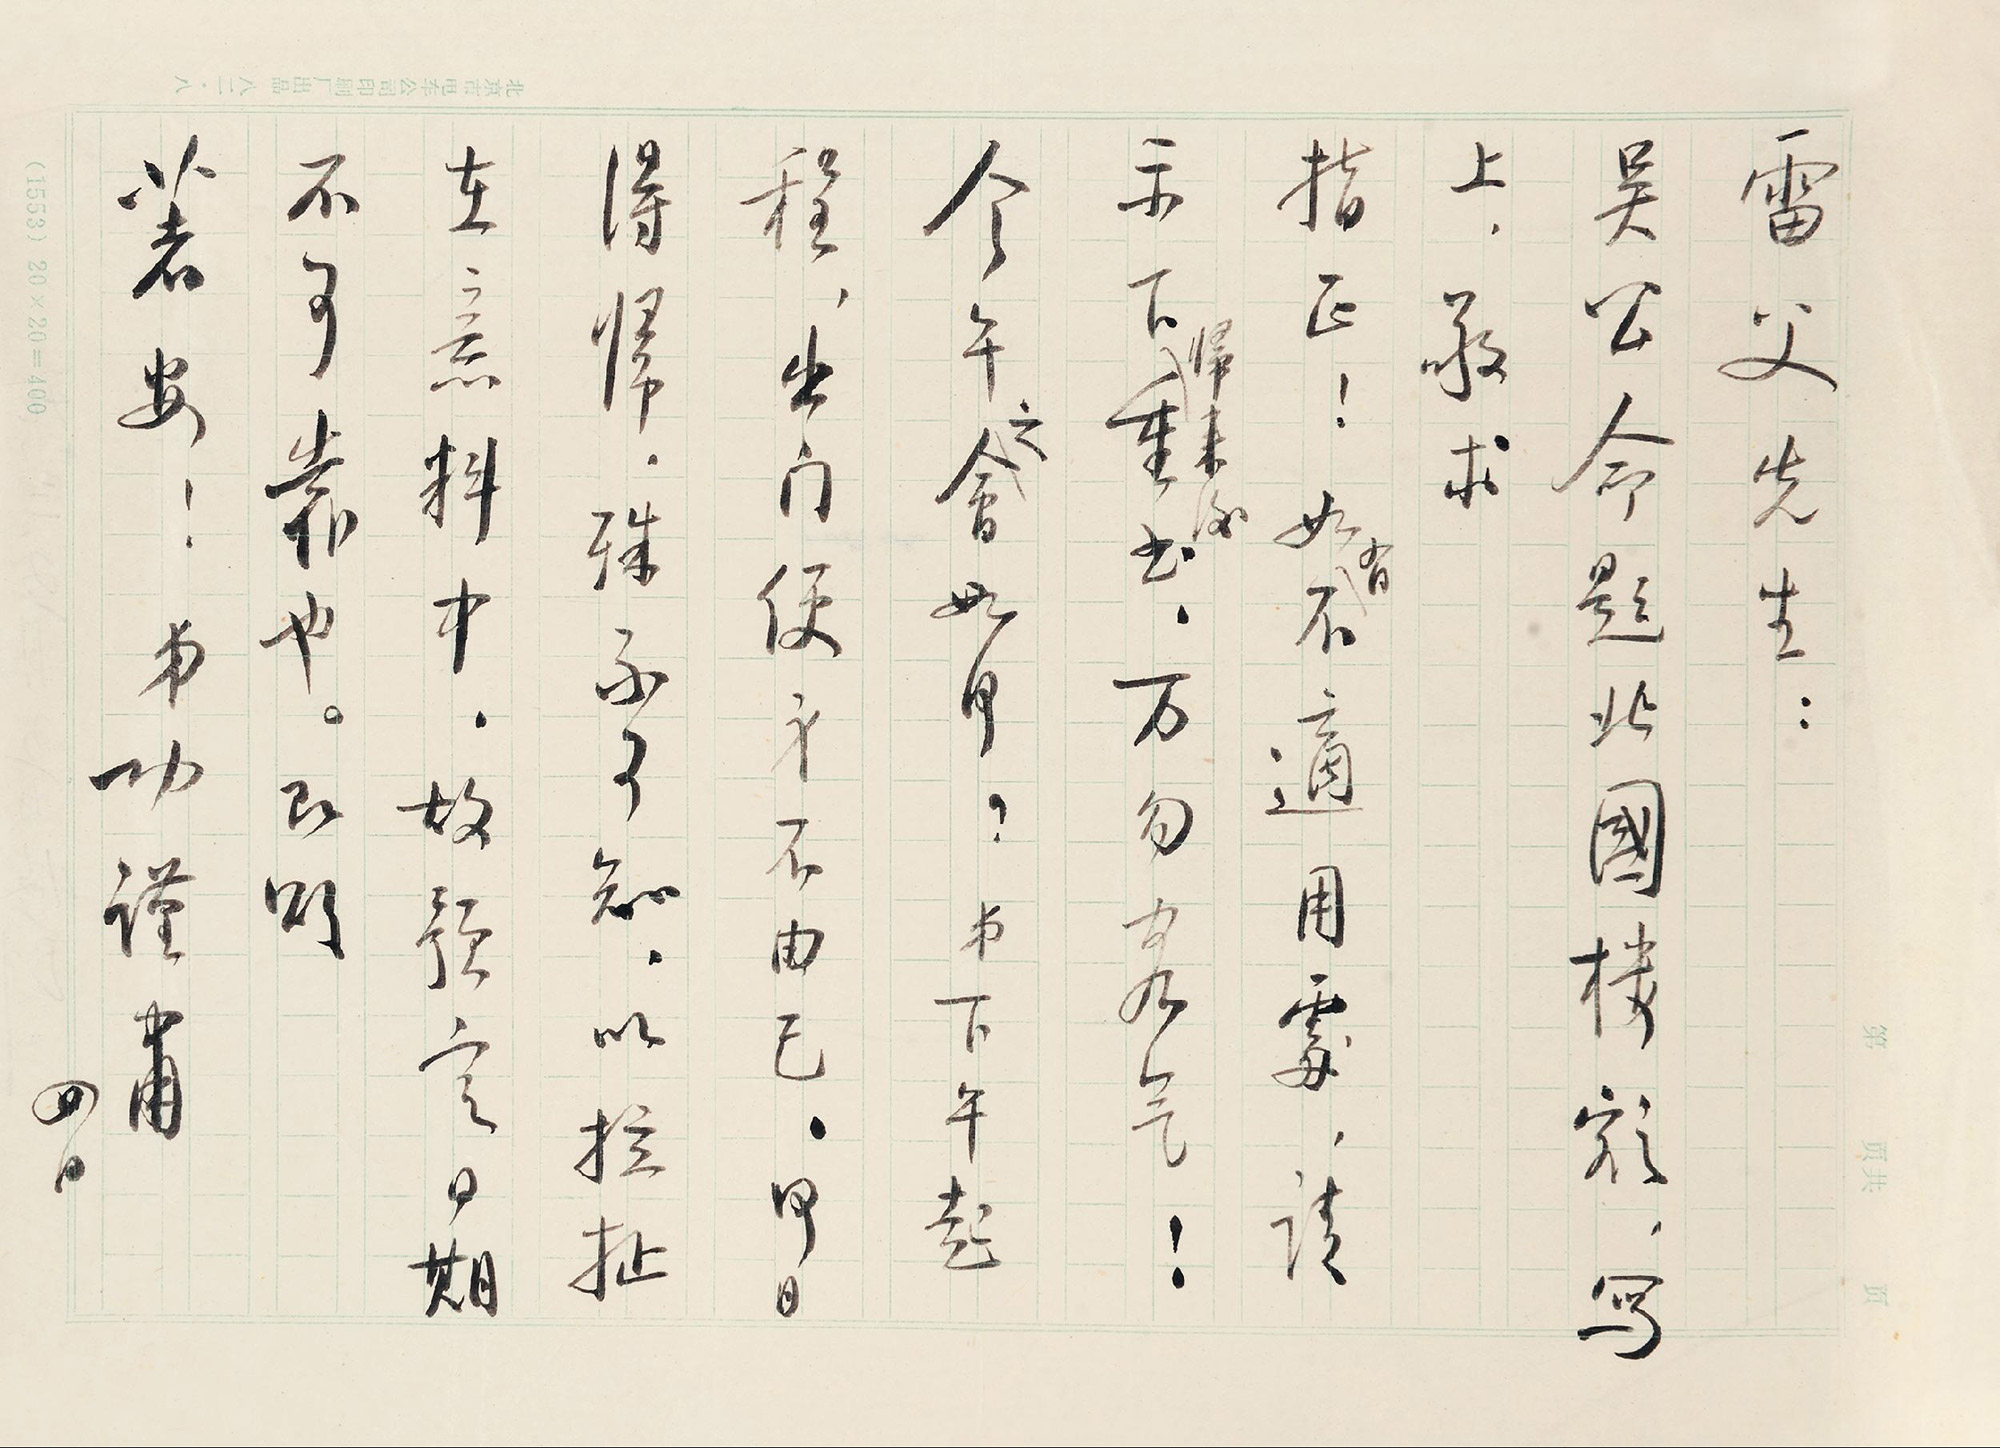 雷父先生：
吴公命题北國楼额，写
上，敬求
指正！如有不適用處，请
示下归来后重书，万勿客气！
今午之會如何？弟下午起
程，出门便身不由己，何日
得归，殊不可知，以拉扯
在意料中，故预定日期
不可靠也。即颂
著安！弟功谨肃
四日
北京市电车公司印刷厂出品 八二·八
(1553) 20×20=400
第 页共 页